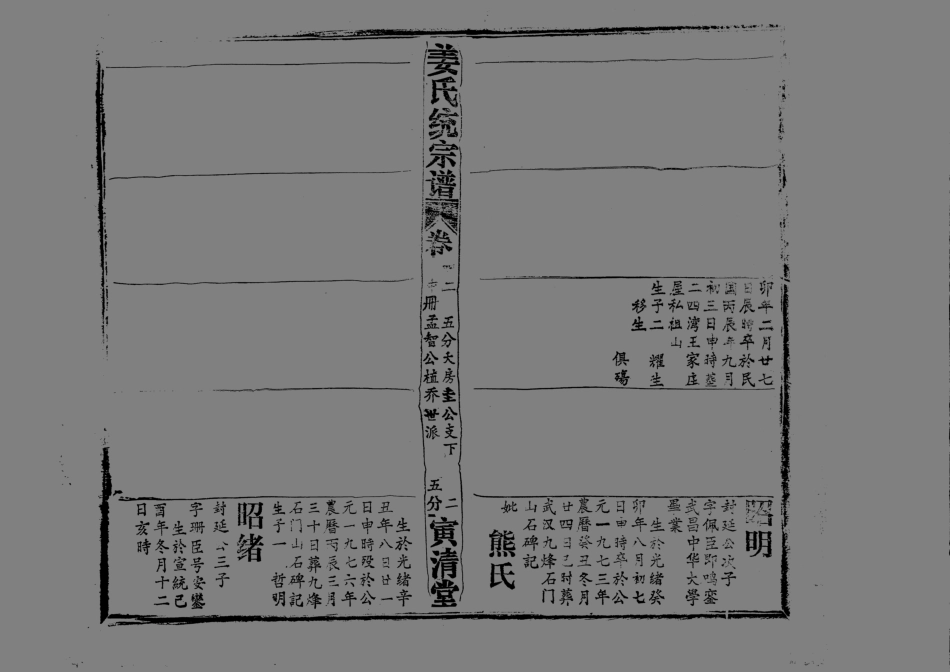 卯年二月廿七
日辰時卒於民
国丙辰年九月
初三日申時葬
二四湾王家庄
屋私祖山
生子二　耀生
移生
俱殇
昭明
封延公次子
字佩臣即鳴銮
武昌中华大學
畢業
生於光緒癸
卯年八月初七
日申時卒於公
元一九七三年
農曆癸丑冬月
廿四日巳时葬
武汉九烽石门
山石碑記
妣　熊氏
姜氏统宗谱　卷
二　五分大房圭公支下　五分二
冊孟智公植乔世派
寅清堂
生於光緒辛
丑年八日廿一
日申時殁於公
元一九七六年
農曆丙辰三月
三十日葬九烽
石门山石碑記
生子一　哲明
昭绪
封延公三子
字珊臣号安鑾
生於宣統己
酉年冬月十二
日亥時